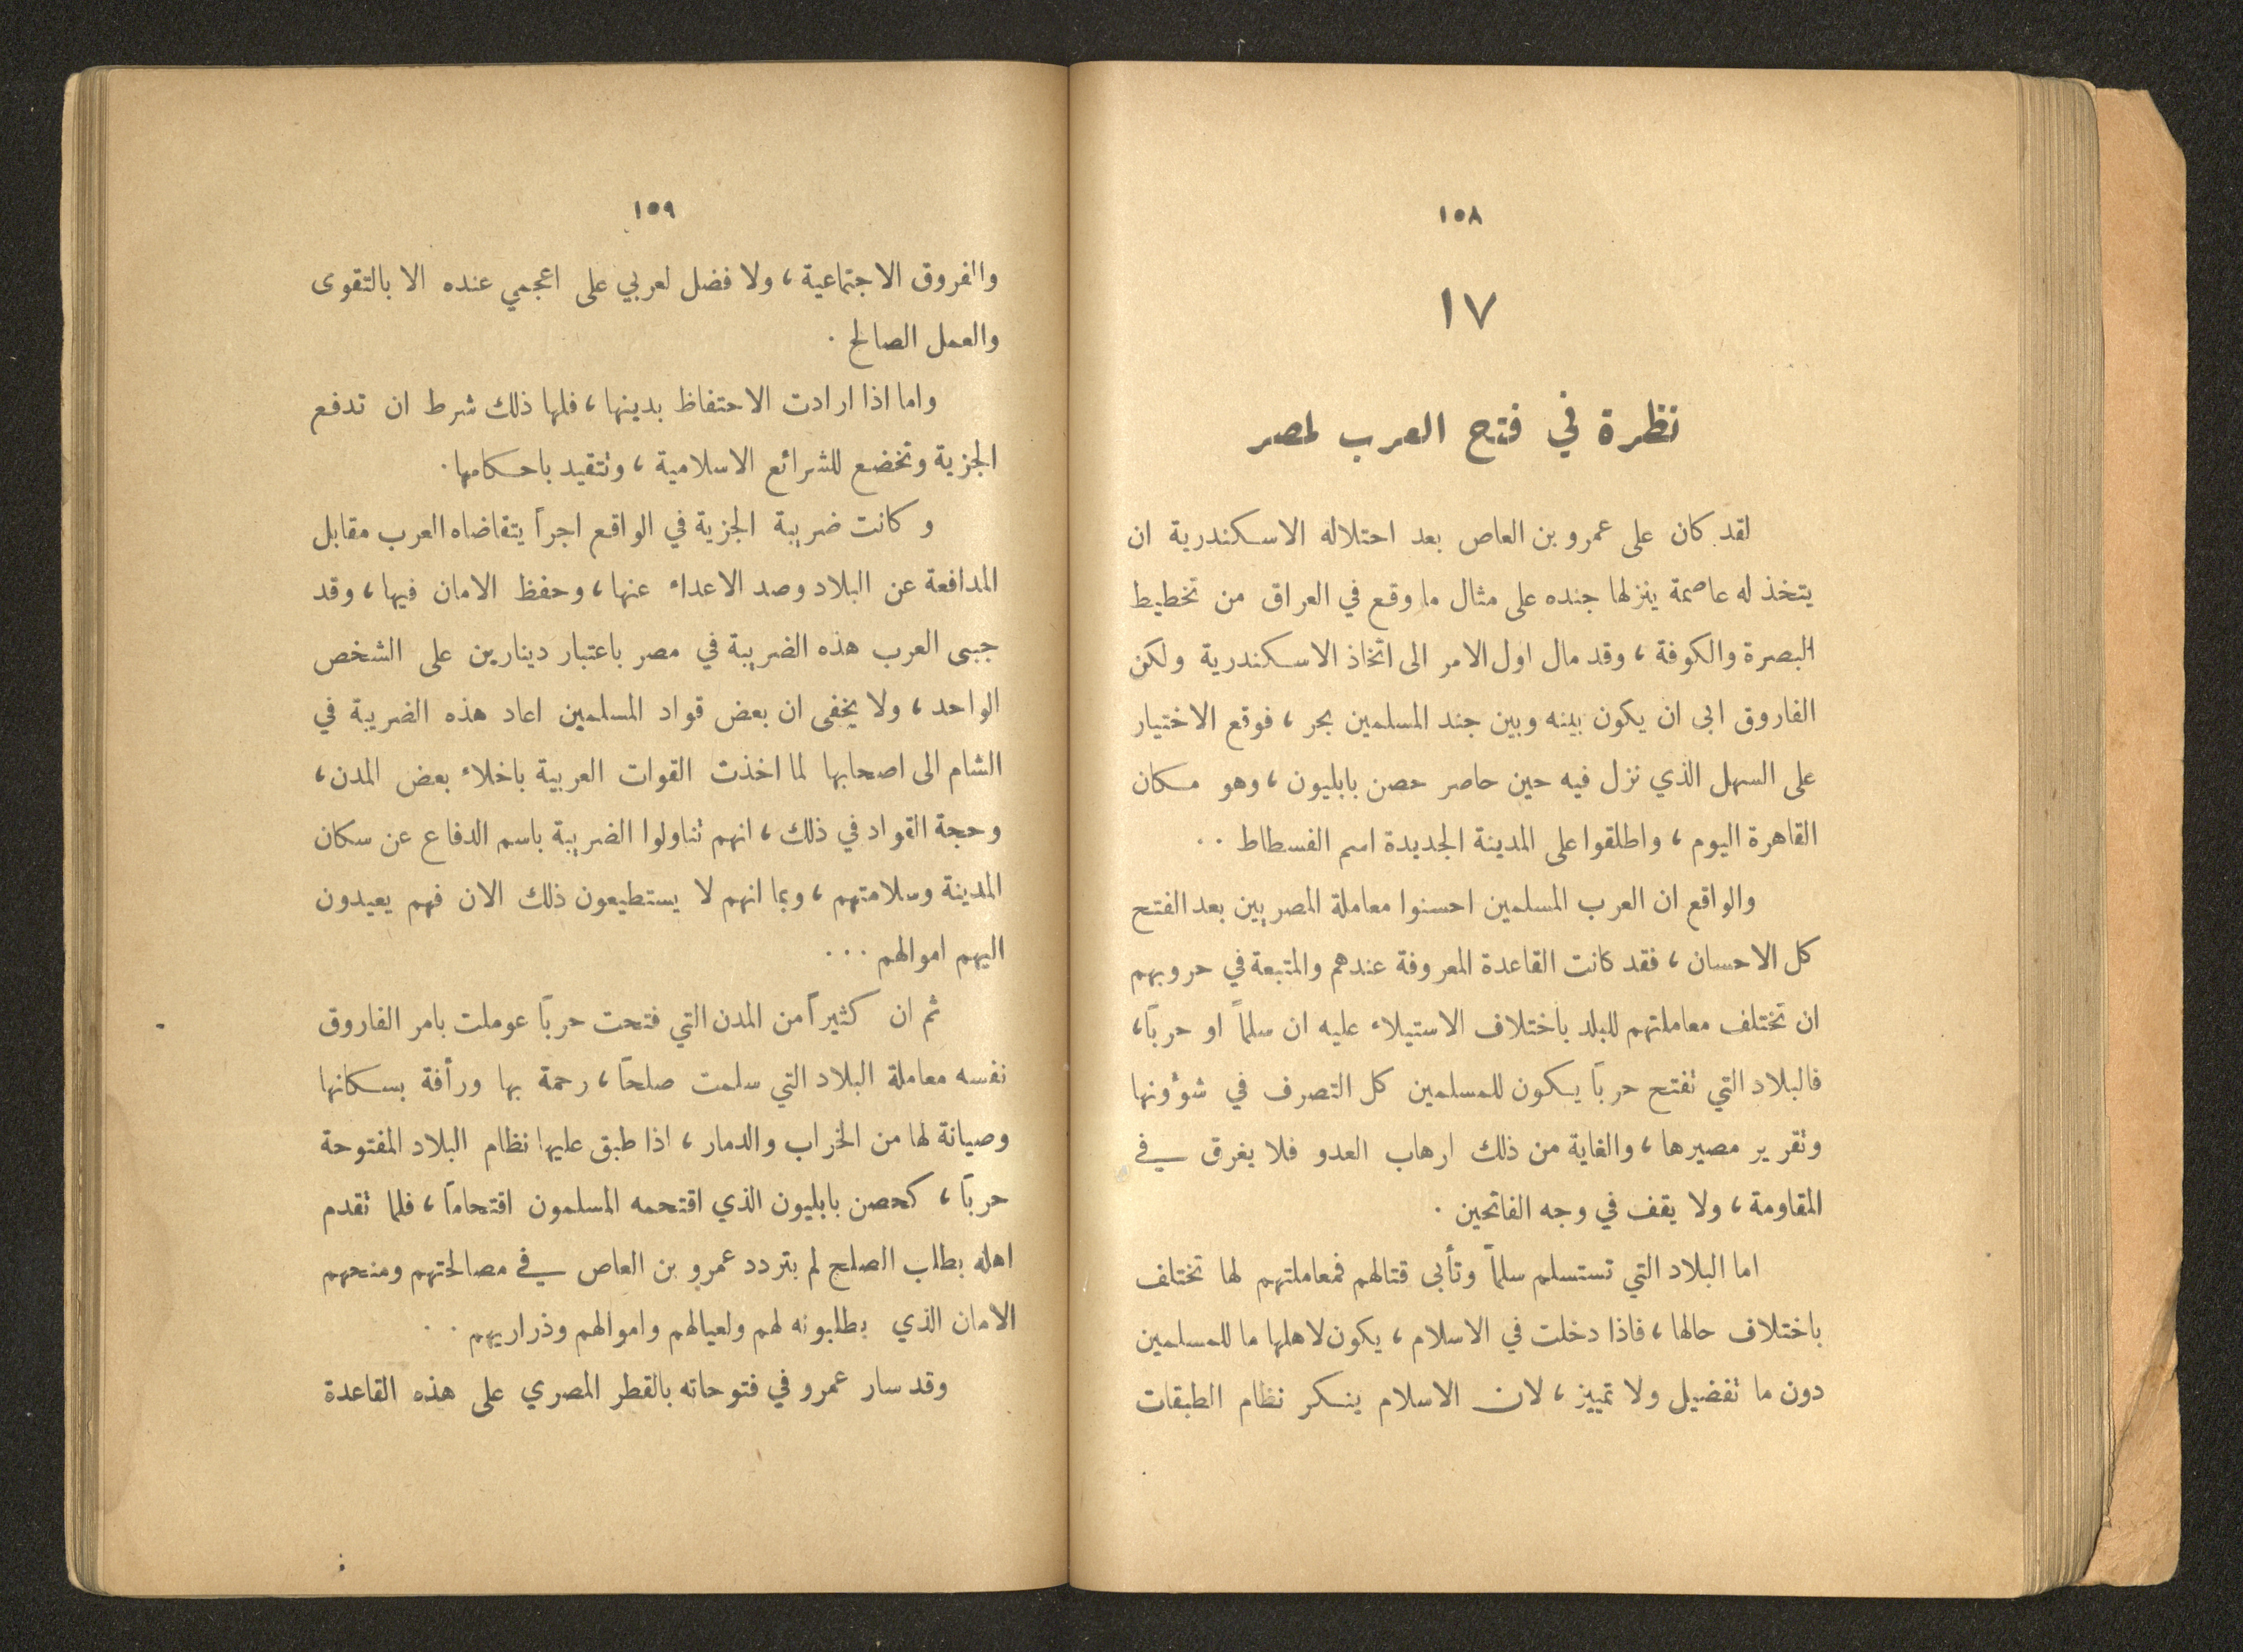 ١٥٨
١٧
نظرة في فتح العرب لمصر
لقد كان على عمرو بن العاص بعد احتلاله الاسكندرية ان
يتخذ له عاصمة ينزلها جنده على مثال ما وقع في العراق من تخطيط
البصرة والكوفة ، وقد مال اول الامر الى اتخاذ الاسكندرية ولكن
الفاروق ابى ان يكون بينه وبين جند المسلمين بحر ، فوقع الاختيار
على السهل الذي نزل فيه حين حاصر حصن بابليون ، وهو مكان
القاهرة اليوم ، واطلقوا على المدينة الجديدة اسم الفسطاط ..
والواقع ان العرب المسلمين احسنوا معاملة المصريين بعد الفتح
كل الاحسان ، فقد كانت القاعدة المعروفة عندهم والمتبعة في حروبهم
ان تختلف معاملتهم للبلد باختلاف الاستيلاء عليه ان سلماً او حرباً ،
فالبلاد التي تفتح حرباً يكون للمسلمين كل التصرف في شؤونها
وتقرير مصيرها ، والغاية من ذلك ارهاب العدو فلا يغرق في
المقاومة ، ولا يقف في وجه الفاتحين .
اما البلاد التي تستسلم سلماً وتأبى قتالهم فمعاملتهم لها تختلف
باختلاف حالها ، فاذا دخلت في الاسلام ، يكون لاهلها ما للمسلمين
دون ما تفضيل ولا تمييز ، لان الاسلام ينكر نظام الطبقات
١٥٩
والفروق الاجتماعية ، ولا فضل لعربي على اعجمي عنده الا بالتقوى
والعمل الصالح .
واما اذا ارادت الاحتفاظ بدينها ، فلها ذلك شرط ان تدفع
الجزية وتخضع للشرائع الاسلامية ، وتتقيد باحكامها .
وكانت ضريبة الجزية في الواقع اجراً يتقاضاه العرب مقابل
المدافعة عن البلاد وصد الاعداء عنها ، وحفظ الامان فيها ، وقد
جبى العرب هذه الضريبة في مصر باعتبار دينارين على الشخص
الواحد ، ولا يخفى ان بعض قواد المسلمين اعاد هذه الضريبة في
الشام الى اصحابها لما اخذت القوات العربية باخلاء بعض المدن ،
وحجة القواد في ذلك ، انهم تناولوا الضريبة باسم الدفاع عن سكان
المدينة وسلامتهم ، وبما انهم لا يستطيعون ذلك الان فهم يعيدون
اليهم اموالهم ...
ثم ان كثيراً من المدن التي فتحت حرباً عوملت بامر الفاروق
نفسه معاملة البلاد التي سلمت صلحاً ، رحمة بها ورأفة بسكانها
وصيانة لها من الخراب والدمار ، اذا طبق عليها نظام البلاد المفتوحة
حرباً ، كحصن بابليون الذي اقتحمه المسلمون اقتحاماً ، فلما تقدم
اهله بطلب الصلح لم يتردد عمرو بن العاص في مصالحتهم ومنحهم
الامان الذي يطلبونه لهم ولعيالهم واموالهم وذراريهم ..
وقد سار عمرو في فتوحاته بالقطر المصري على هذه القاعدة